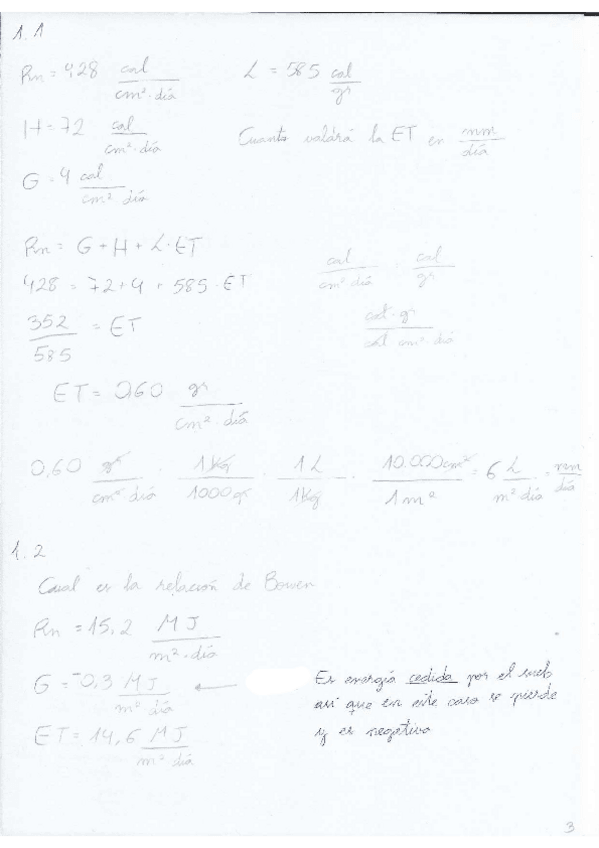 1.1
Rn = 428 cal/cm²·día L = 585 cal/gr
H = 72 cal/cm²·día Cuanto valdrá la ET en mm/día
G = 4 cal/cm² día
Rn = G + H + L·ET
428 = 72 + 4 + 585·ET cal/cm² día · cal/gr
352/585 = ET cal·gr/cal cm² día
ET = 0,60 gr/cm²·día
0,60 gr/cm² día · 1 Kg/1000 gr · 1 L/1 Kg · 10.000 cm²/1 m² = 6 L/m² día = mm/día
1.2
Cual es la relación de Bowen
Rn = 15,2 MJ/m²·día
G = -0,3 MJ/m² día ← Es energía cedida por el suelo
así que en este caso se pierde
y es negativo
ET = 14,6 MJ/m² día
3